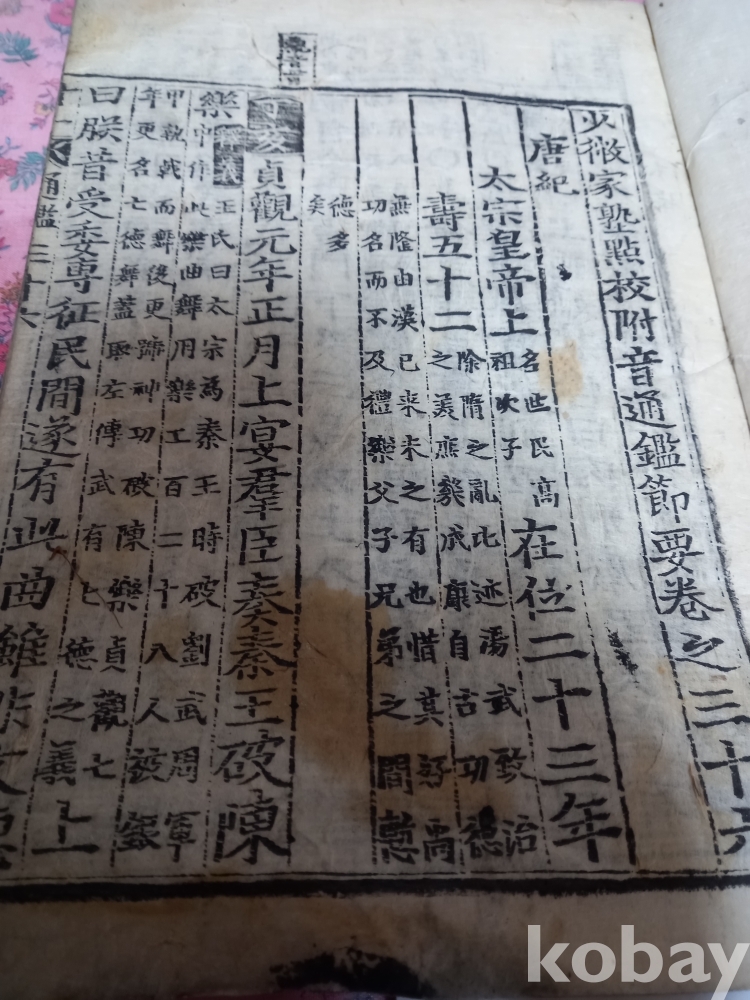 少微家塾點校附音通鑑節要卷之三十六
唐紀
太宗皇帝上
名世民高
祖次子
在位二十三年
壽五十二
除隋之亂比迹湯武致治
之美庶幾成康自古功德
兼隆由漢已来未之有也惜其好尚
功名而不及禮樂父子兄弟之間慙
德多
矣
丁亥貞觀元年正月上宴群臣奏秦王破陳
樂
釋義王氏曰太宗爲秦王時破劉武周軍
中作此樂曲舞用樂工百二十八人被銀
甲執戟而舞後更號神功破陳樂貞觀七
年更名七德舞蓋取左傳武有七德之義
上
曰朕昔受委專征民間遂有此曲雖非文
通鑑三十六
kobay